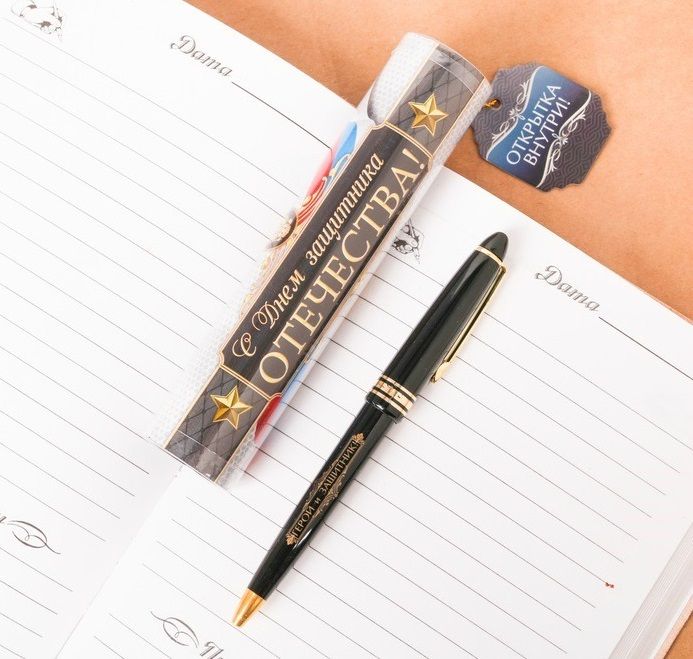 Дата
С Днем защитника
ОТЕЧЕСТВА!
ОТКРЫТКА
ВНУТРИ!
Дата
ГЕРОЙ и ЗАЩИТНИК!